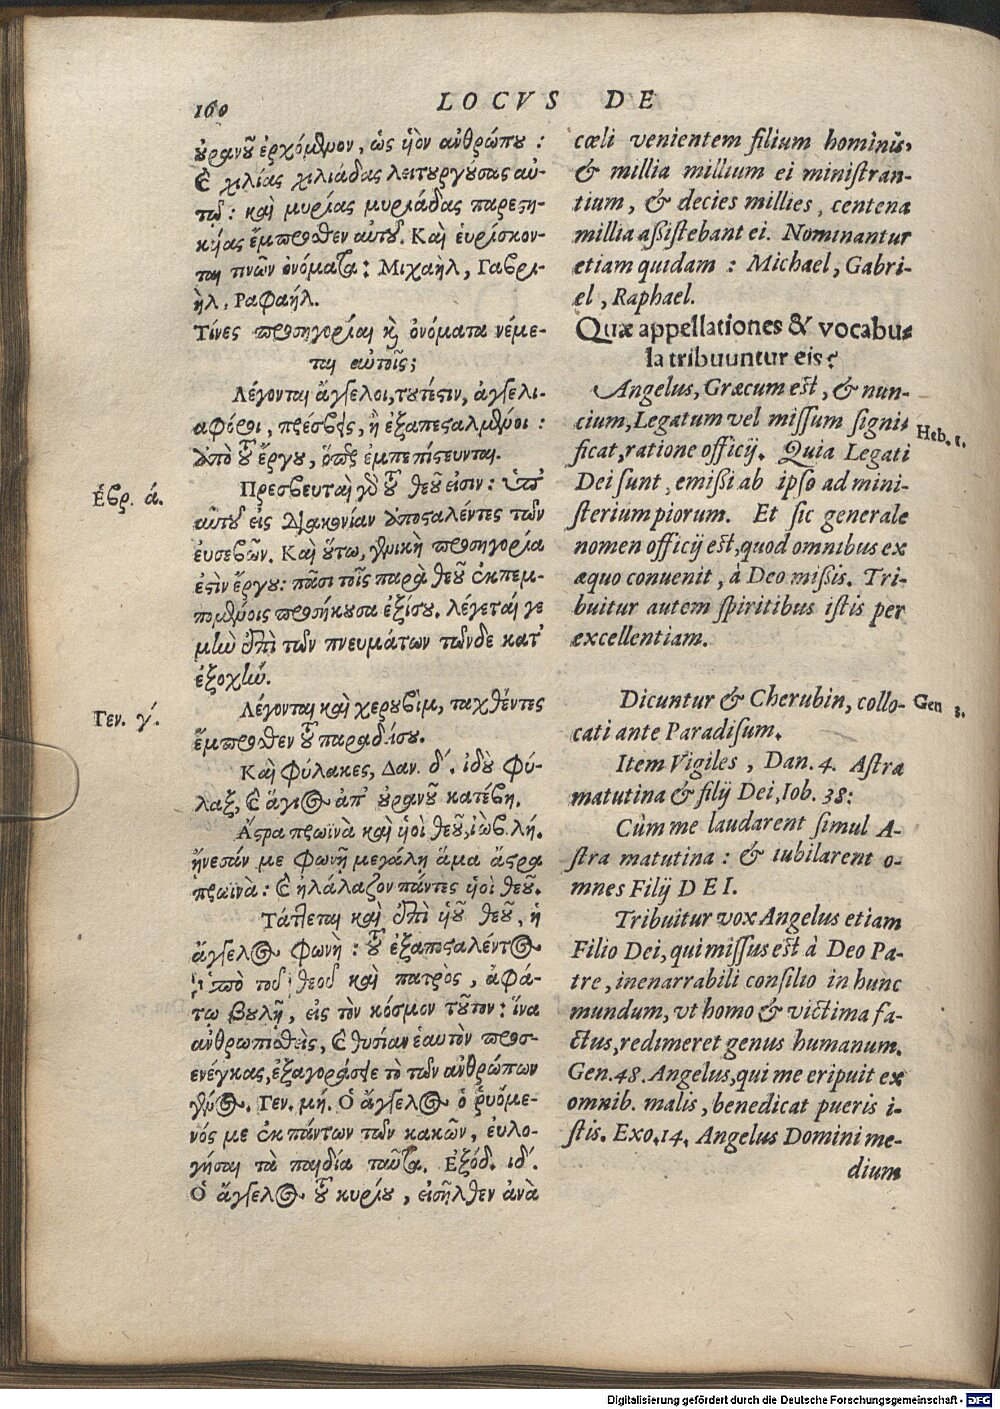 160
LOCVS DE
οὐρανοῦ ἐρχόμενον, ὡς υἱὸν ἀνθρώπου:
καὶ χιλίας χιλιάδας λειτουργούσας αὐ-
τῷ: καὶ μυρίας μυριάδας παρεστη-
κυίας ἔμπροσθεν αὐτοῦ. Καὶ εὑρίσκον-
ται τινῶν ὀνόματα: Μιχαὴλ, Γαβρι-
ὴλ, Ραφαήλ.
Τίνες προσηγορίαι καὶ ὀνόματα νέμε-
ται αὐτοῖς;
Λέγονται ἄγγελοι, τουτέστιν, ἀγγελι-
αφόροι, πρέσβεις, ἢ ἐξαπεσταλμένοι:
ἀπὸ τοῦ ἔργου, ὅπερ ἐμπεπίστευνται.
Ἑβρ. ά.
Πρεσβευταὶ γὰρ τοῦ θεοῦ εἰσιν: ὑπ'
αὐτοῦ εἰς διακονίαν ἀποσταλέντες τῶν
εὐσεβῶν. Καὶ οὕτω, γενικὴ προσηγορία
ἐστὶν ἔργου: πᾶσι τοῖς παρὰ θεοῦ ἐκπεμ-
πομένοις προσήκουσα ἐξίσου. λέγεταί γε
μὴν ἐπὶ τῶν πνευμάτων τῶνδε κατ'
ἐξοχήν.
Γεν. γ΄.
Λέγονται καὶ χερυβὶμ, ταχθέντες
ἔμπροσθεν τοῦ παραδείσου.
Καὶ φύλακες, Δαν. δ΄. ἰδοὺ φύ-
λαξ, καὶ ἅγιος ἀπ' οὐρανοῦ κατέβη.
Ἄστρα πρωϊνὰ καὶ υἱοὶ θεοῦ, ἰὼβ λή.
ᾔνεσάν με φωνῇ μεγάλῃ ἅμα ἄστρα
πρωϊνὰ: καὶ ἠλάλαζον πάντες υἱοὶ θεοῦ.
Τάττεται καὶ ἐπὶ υἱοῦ θεοῦ, ἡ
ἄγγελος φωνὴ: τοῦ ἐξαποσταλέντος
ὑπὸ τοῦ θεοῦ καὶ πατρὸς, ἀφά-
τῳ βουλῇ, εἰς τὸν κόσμον τοῦτον: ἵνα
ἀνθρωπισθεὶς, καὶ θυσίαν ἑαυτὸν προσ-
ενέγκας, ἐξαγοράσῃ τὸ τῶν ἀνθρώπων
γένος. Γεν. μή. Ὁ ἄγγελος ὁ ῥυόμε-
νός με ἐκ πάντων τῶν κακῶν, εὐλο-
γήσαι τὰ παιδία ταῦτα. Ἐξόδ. ιδ΄.
Ὁ ἄγγελος τοῦ κυρίου, εἰσῆλθεν ἀνὰ
cœli venientem filium hominis,
& millia millium ei ministran-
tium, & decies millies, centena
millia assistebant ei. Nominantur
etiam quidam: Michael, Gabri-
el, Raphael.
Quæ appellationes & vocabu-
la tribuuntur eis?
Angelus, Græcum est, & nun-
cium, Legatum vel missum signi-
ficat, ratione officij. Quia Legati
Heb. 1.
Dei sunt, emissi ab ipso ad mini-
sterium piorum. Et sic generale
nomen officij est, quod omnibus ex
æquo conuenit, à Deo missis. Tri-
buitur autem spiritibus istis per
excellentiam.
Dicuntur & Cherubin, collo-
Gen 3.
cati ante Paradisum.
Item Vigiles, Dan. 4. Astra
matutina & filij Dei, Iob. 38:
Cùm me laudarent simul A-
stra matutina: & iubilarent o-
mnes Filij DEI.
Tribuitur vox Angelus etiam
Filio Dei, qui missus est à Deo Pa-
tre, inenarrabili consilio in hunc
mundum, vt homo & victima fa-
ctus, redimeret genus humanum.
Gen. 48. Angelus, qui me eripuit ex
omnib. malis, benedicat pueris i-
stis. Exo. 14. Angelus Domini me-
dium
Digitalisierung gefördert durch die Deutsche Forschungsgemeinschaft - DFG